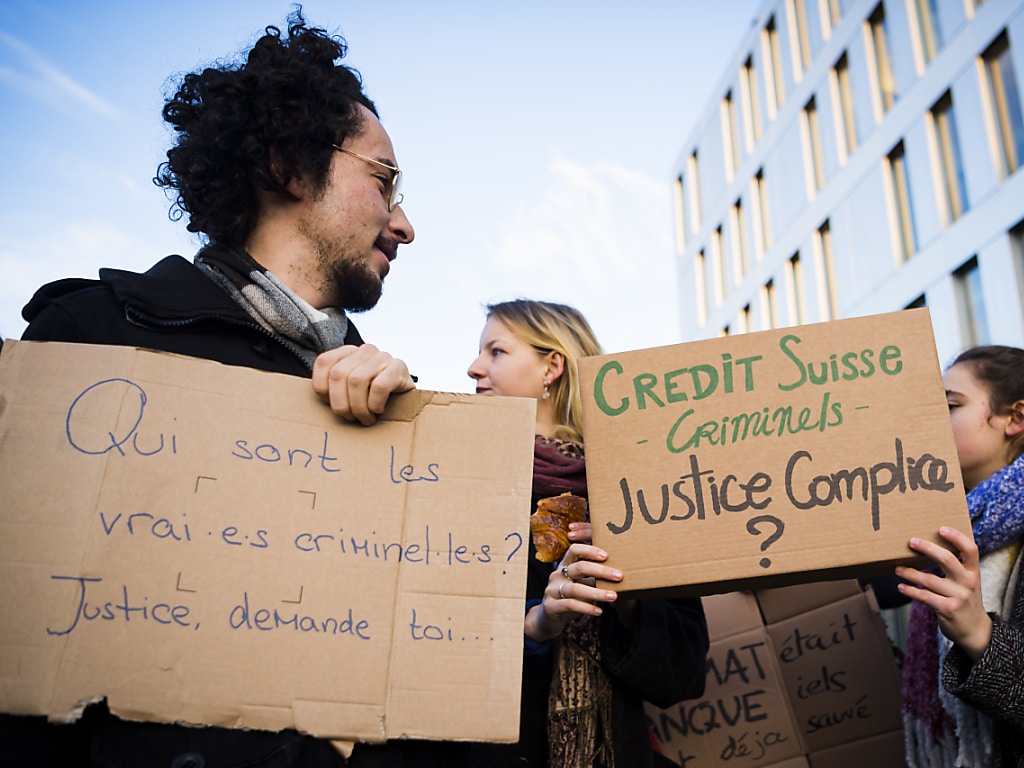 Qui sont les
vrai·e·s criminel·le·s ?
Justice, demande toi...
CREDIT SUISSE
- CRIMINELS -
JUSTICE COMPLICE
?
MAT était
ANQUE iels
t déjà sauvé